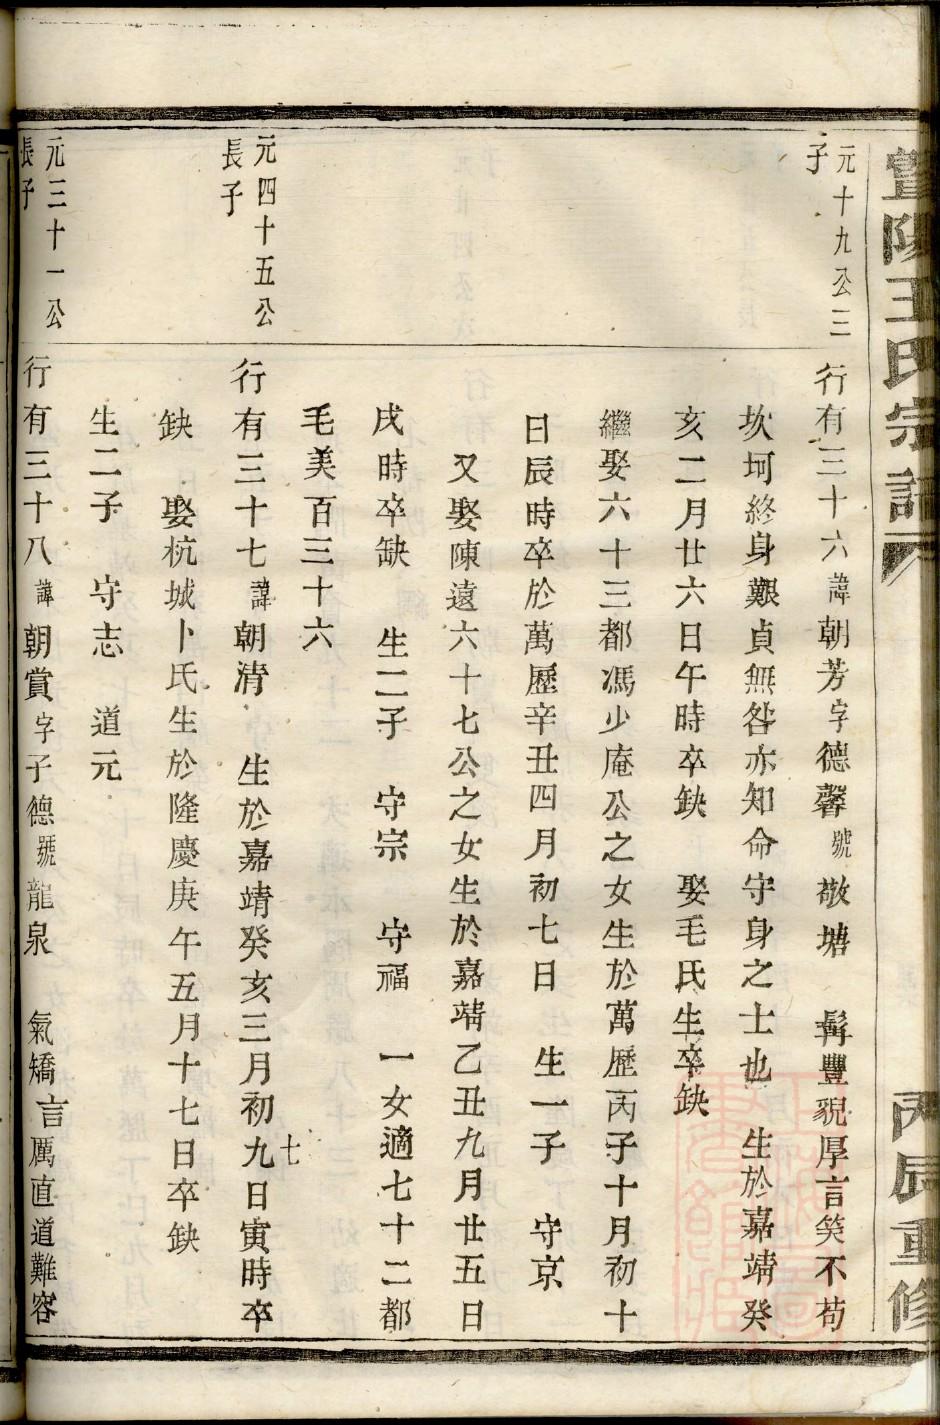 暨陽王氏宗譜
丙辰重修
元十九公三
子
行有三十六諱朝芳字德馨號敬塘 髯豐貌厚言笑不苟
坎坷終身艱貞無咎亦知命守身之士也 生於嘉靖癸
亥二月廿六日午時卒缺 娶毛氏生卒缺
繼娶六十三都馮少庵公之女生於萬歷丙子十月初十
日辰時卒於萬歷辛丑四月初七日 生一子 守京
又娶陳遠六十七公之女生於嘉靖乙丑九月廿五日
戌時卒缺 生二子 守宗 守福 一女適七十二都
毛美百三十六
元四十五公
長子
行有三十七諱朝清 生於嘉靖癸亥三月初九日寅時卒
缺 娶杭城卜氏生於隆慶庚午五月十七日卒缺
生二子 守志 道元
元三十一公
長子
行有三十八諱朝賞字子德號龍泉 氣矯言厲直道難容
七